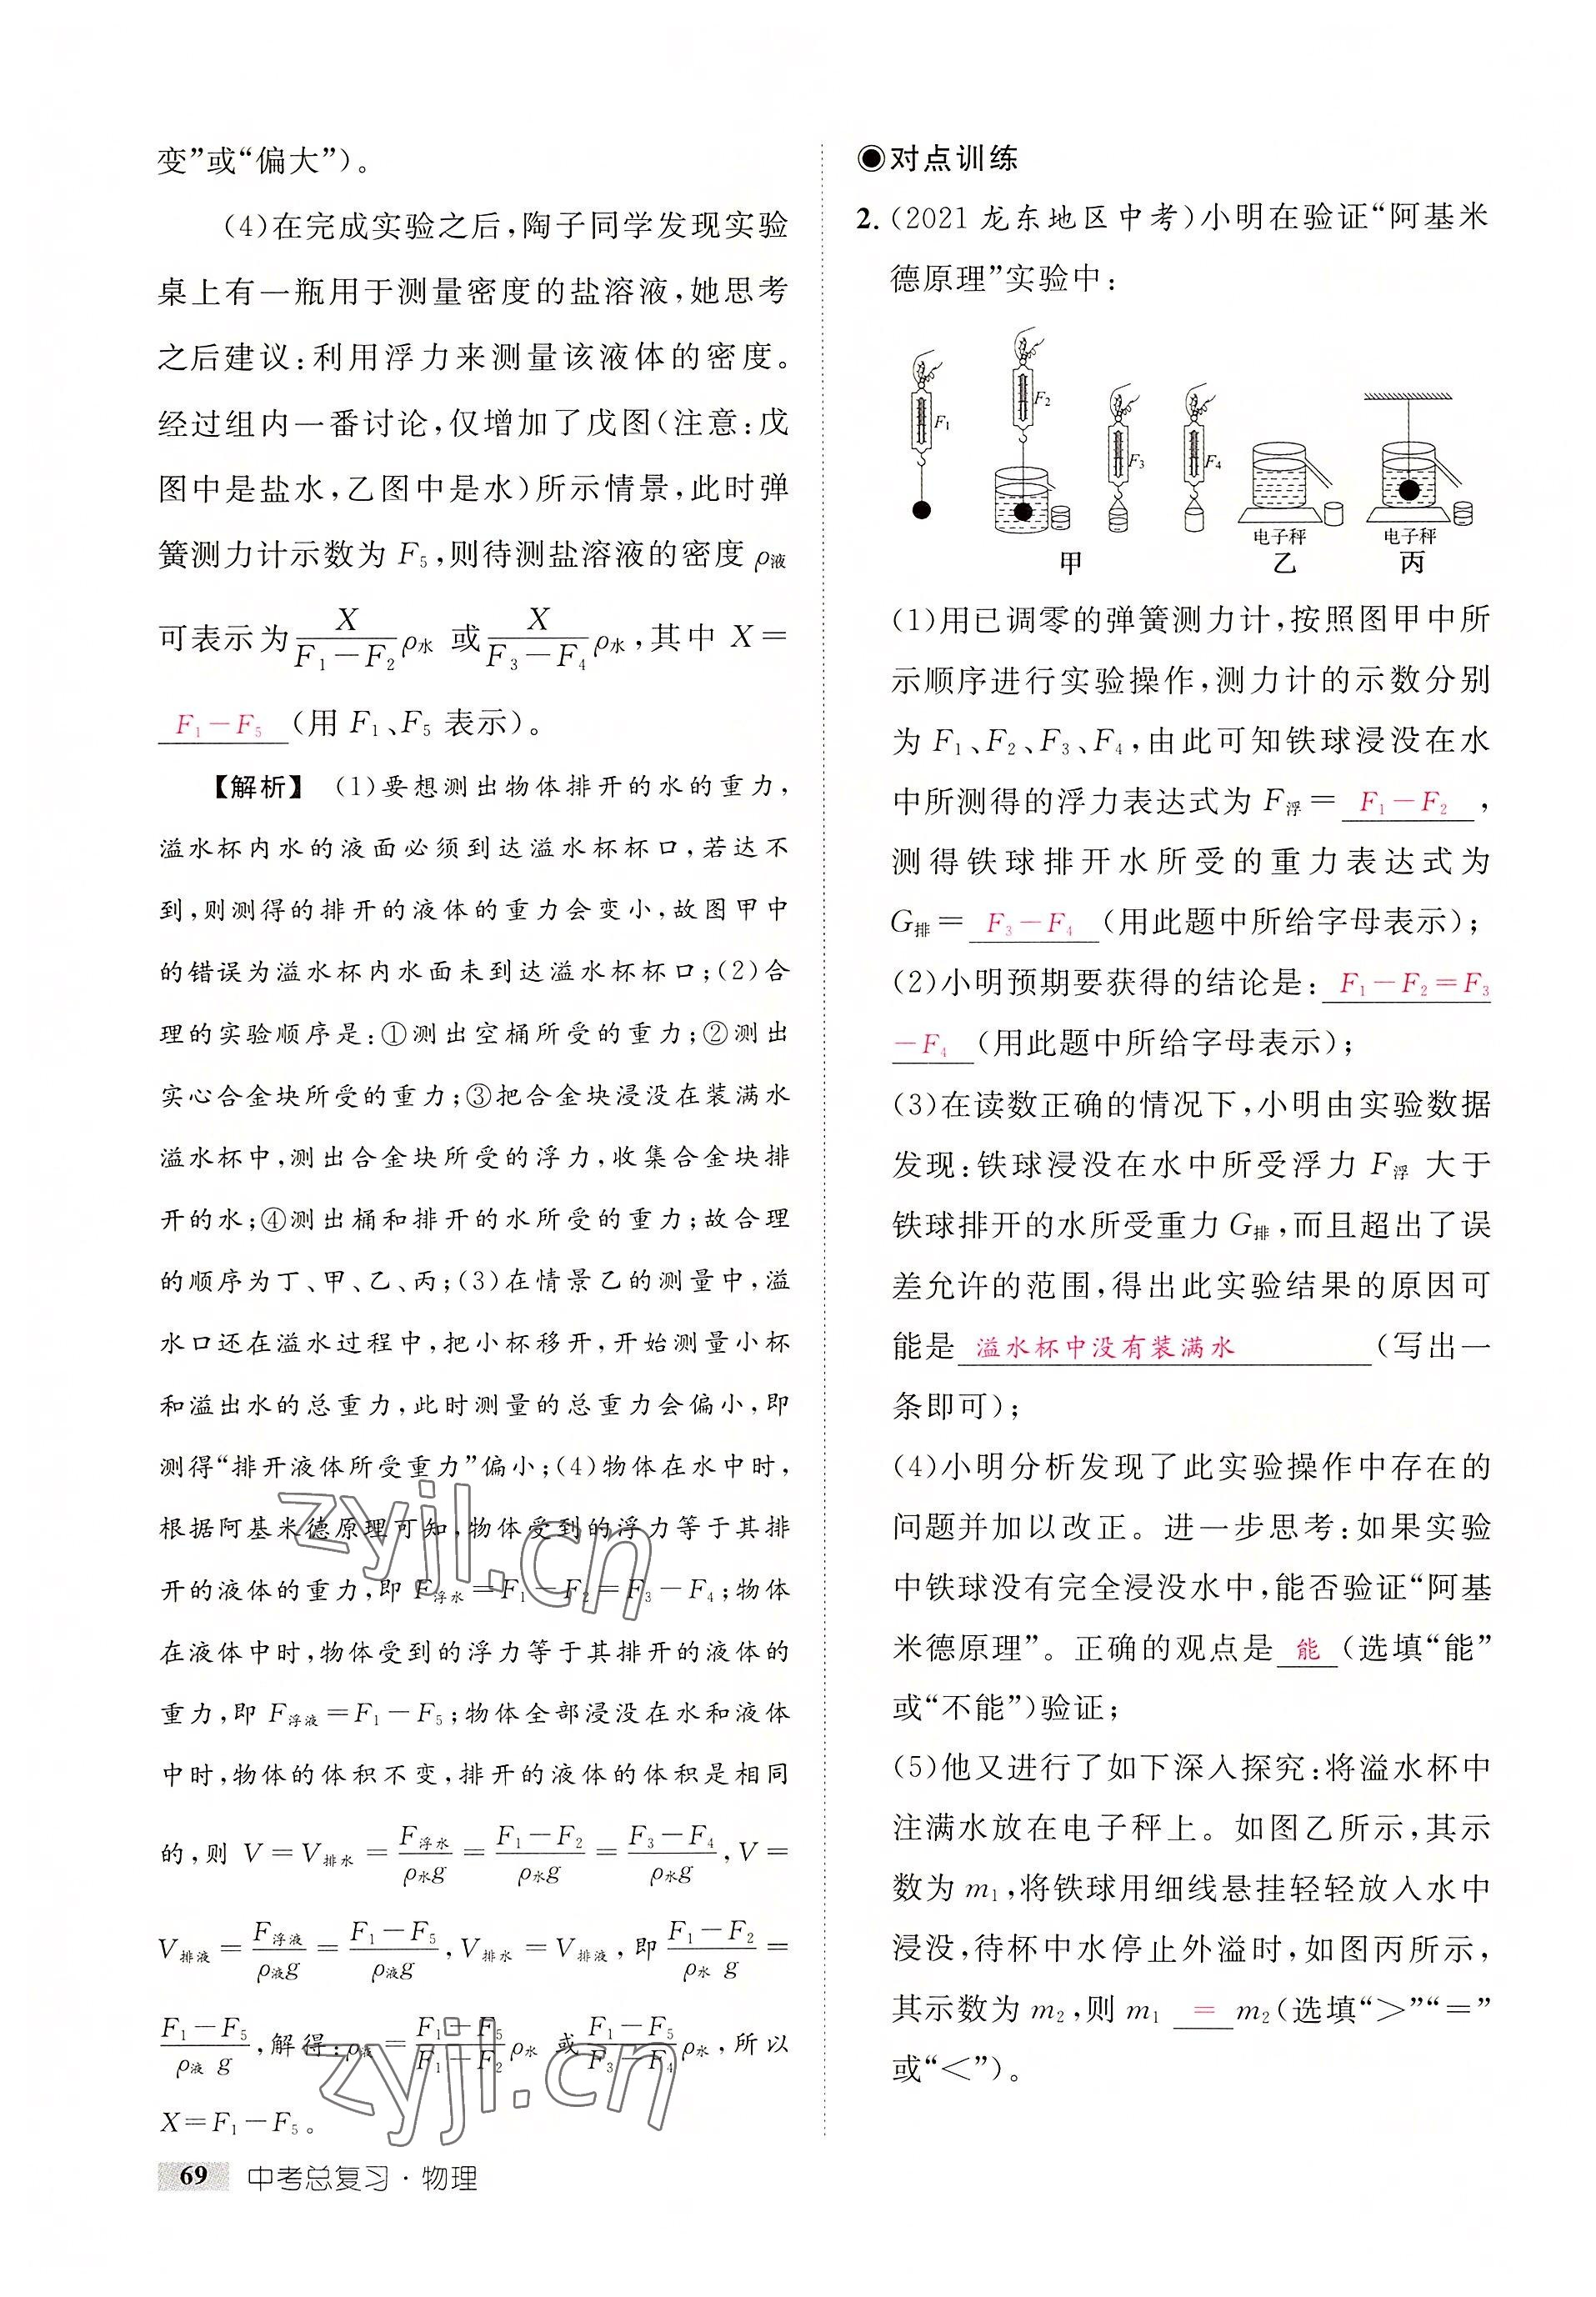 变”或“偏大”)。
(4)在完成实验之后,陶子同学发现实验
桌上有一瓶用于测量密度的盐溶液,她思考
之后建议:利用浮力来测量该液体的密度。
经过组内一番讨论,仅增加了戊图(注意:戊
图中是盐水,乙图中是水)所示情景,此时弹
簧测力计示数为 F₅,则待测盐溶液的密度 ρ液
可表示为 X/(F₁-F₂) ρ水 或 X/(F₃-F₄) ρ水,其中 X=
F₁-F₅ (用 F₁、F₅ 表示)。
【解析】 (1)要想测出物体排开的水的重力,
溢水杯内水的液面必须到达溢水杯杯口,若达不
到,则测得的排开的液体的重力会变小,故图甲中
的错误为溢水杯内水面未到达溢水杯杯口;(2)合
理的实验顺序是:①测出空桶所受的重力;②测出
实心合金块所受的重力;③把合金块浸没在装满水
溢水杯中,测出合金块所受的浮力,收集合金块排
开的水;④测出桶和排开的水所受的重力;故合理
的顺序为丁、甲、乙、丙;(3)在情景乙的测量中,溢
水口还在溢水过程中,把小杯移开,开始测量小杯
和溢出水的总重力,此时测量的总重力会偏小,即
测得“排开液体所受重力”偏小;(4)物体在水中时,
根据阿基米德原理可知,物体受到的浮力等于其排
开的液体的重力,即 F浮水=F₁-F₂=F₃-F₄;物体
在液体中时,物体受到的浮力等于其排开的液体的
重力,即 F浮液=F₁-F₅;物体全部浸没在水和液体
中时,物体的体积不变,排开的液体的体积是相同
的,则 V=V排水=F浮水/(ρ水g)=(F₁-F₂)/(ρ水g)=(F₃-F₄)/(ρ水g),V=
V排液=F浮液/(ρ液g)=(F₁-F₅)/(ρ液g),V排水=V排液,即 (F₁-F₂)/(ρ水 g)=
(F₁-F₅)/(ρ液 g),解得:ρ液=(F₁-F₅)/(F₁-F₂) ρ水 或 (F₁-F₅)/(F₃-F₄) ρ水,所以
X=F₁-F₅。
69 中考总复习·物理
◉对点训练
2.(2021 龙东地区中考)小明在验证“阿基米
德原理”实验中:
F₁ F₂ F₃ F₄
电子秤 电子秤
甲 乙 丙
(1)用已调零的弹簧测力计,按照图甲中所
示顺序进行实验操作,测力计的示数分别
为 F₁、F₂、F₃、F₄,由此可知铁球浸没在水
中所测得的浮力表达式为 F浮= F₁-F₂ ,
测得铁球排开水所受的重力表达式为
G排= F₃-F₄ (用此题中所给字母表示);
(2)小明预期要获得的结论是: F₁-F₂=F₃
-F₄ (用此题中所给字母表示);
(3)在读数正确的情况下,小明由实验数据
发现:铁球浸没在水中所受浮力 F浮 大于
铁球排开的水所受重力 G排,而且超出了误
差允许的范围,得出此实验结果的原因可
能是 溢水杯中没有装满水 (写出一
条即可);
(4)小明分析发现了此实验操作中存在的
问题并加以改正。进一步思考:如果实验
中铁球没有完全浸没水中,能否验证“阿基
米德原理”。正确的观点是 能 (选填“能”
或“不能”)验证;
(5)他又进行了如下深入探究:将溢水杯中
注满水放在电子秤上。如图乙所示,其示
数为 m₁,将铁球用细线悬挂轻轻放入水中
浸没,待杯中水停止外溢时,如图丙所示,
其示数为 m₂,则 m₁ = m₂(选填“>”“=”
或“<”)。
zyjl.cn
zyjl.cn